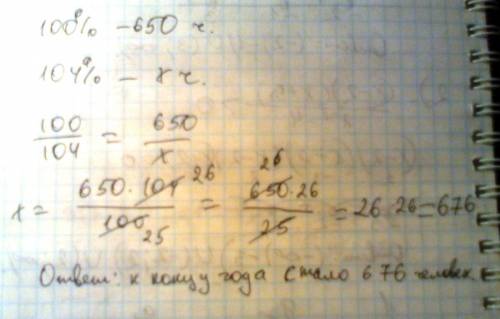 100% - 650 ч.
104% - х ч.
100/104 = 650/x
x = 650·104 26/100 25 = 26 650·26/25 = 26·26=676
Ответ: к концу года стало 676 человек.